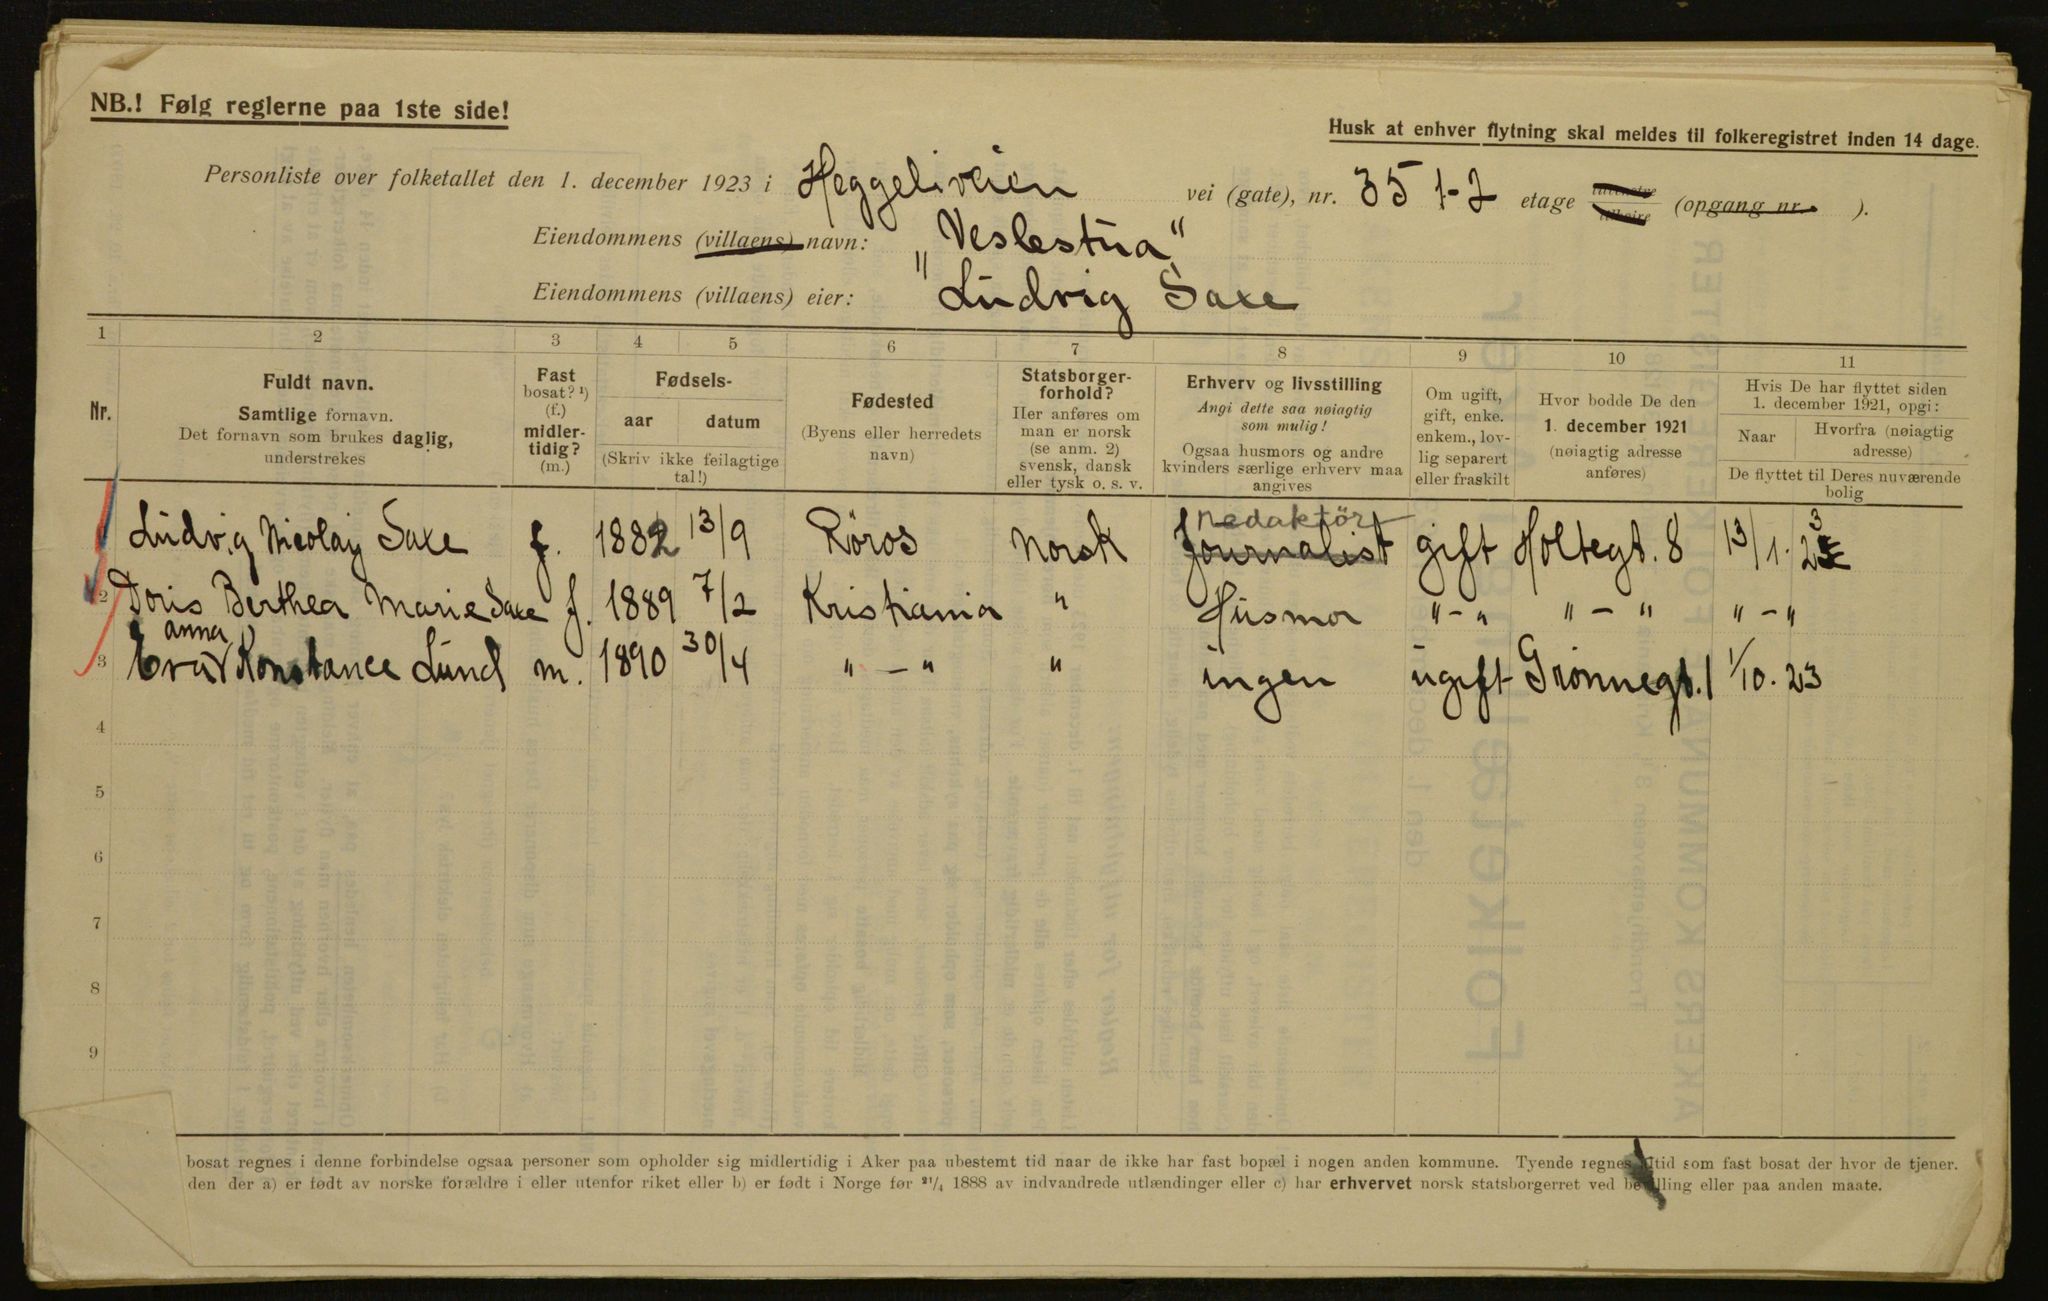 NB.! Følg reglerne paa 1ste side!
Husk at enhver flytning skal meldes til folkeregistret inden 14 dage.
Personliste over folketallet den 1. december 1923 i Heggeliveien vei (gate), nr. 35 1-2 etage tilvenstre tilhøire (opgang nr. ).
Eiendommens (villaens) navn: "Veslestua"
Eiendommens (villaens) eier: Ludvig Saxe
1 2 3 4 5 6 7 8 9 10 11
Nr.
Fuldt navn.
Samtlige fornavn.
Det fornavn som brukes daglig,
understrekes
Fast
bosat? ¹)
(f.)
midler-
tidig?
(m.)
Fødsels-
aar datum
(Skriv ikke feilagtige
tal!)
Fødested
(Byens eller herredets
navn)
Statsborger-
forhold?
Her anføres om
man er norsk
(se anm. 2)
svensk, dansk
eller tysk o. s. v.
Erhverv og livsstilling
Angi dette saa nøiagtig
som mulig!
Ogsaa husmors og andre
kvinders særlige erhverv maa
angives
Om ugift,
gift, enke.
enkem., lov-
lig separert
eller fraskilt
Hvor bodde De den
1. december 1921
(nøiagtig adresse
anføres)
Hvis De har flyttet siden
1. december 1921, opgi:
Naar Hvorfra (nøiagtig
adresse)
De flyttet til Deres nuværende
bolig
Redaktör
Ludvig Nicolay Saxe f. 1882 13/9 Röros Norsk Journalist gift Holtegt. 8 13/1. 23
2 Doris Berthea Marie Saxe f. 1889 7/2 Kristiania " Husmor "-" "-" "-"
anna
3 Eva Konstance Lund m. 1890 30/4 "-" " ingen ugift Grönnegt. 1 1/10. 23
4
5
6
7
8
9
bosat regnes i denne forbindelse ogsaa personer som opholder sig midlertidig i Aker paa ubestemt tid naar de ikke har fast bopæl i nogen anden kommune. Tyende regnes altid som fast bosat der hvor de tjener.
den der a) er født av norske forældre i eller utenfor riket eller b) er født i Norge før ²¹/₄ 1888 av indvandrede utlændinger eller c) har erhvervet norsk statsborgerret ved bevilling eller paa anden maate.